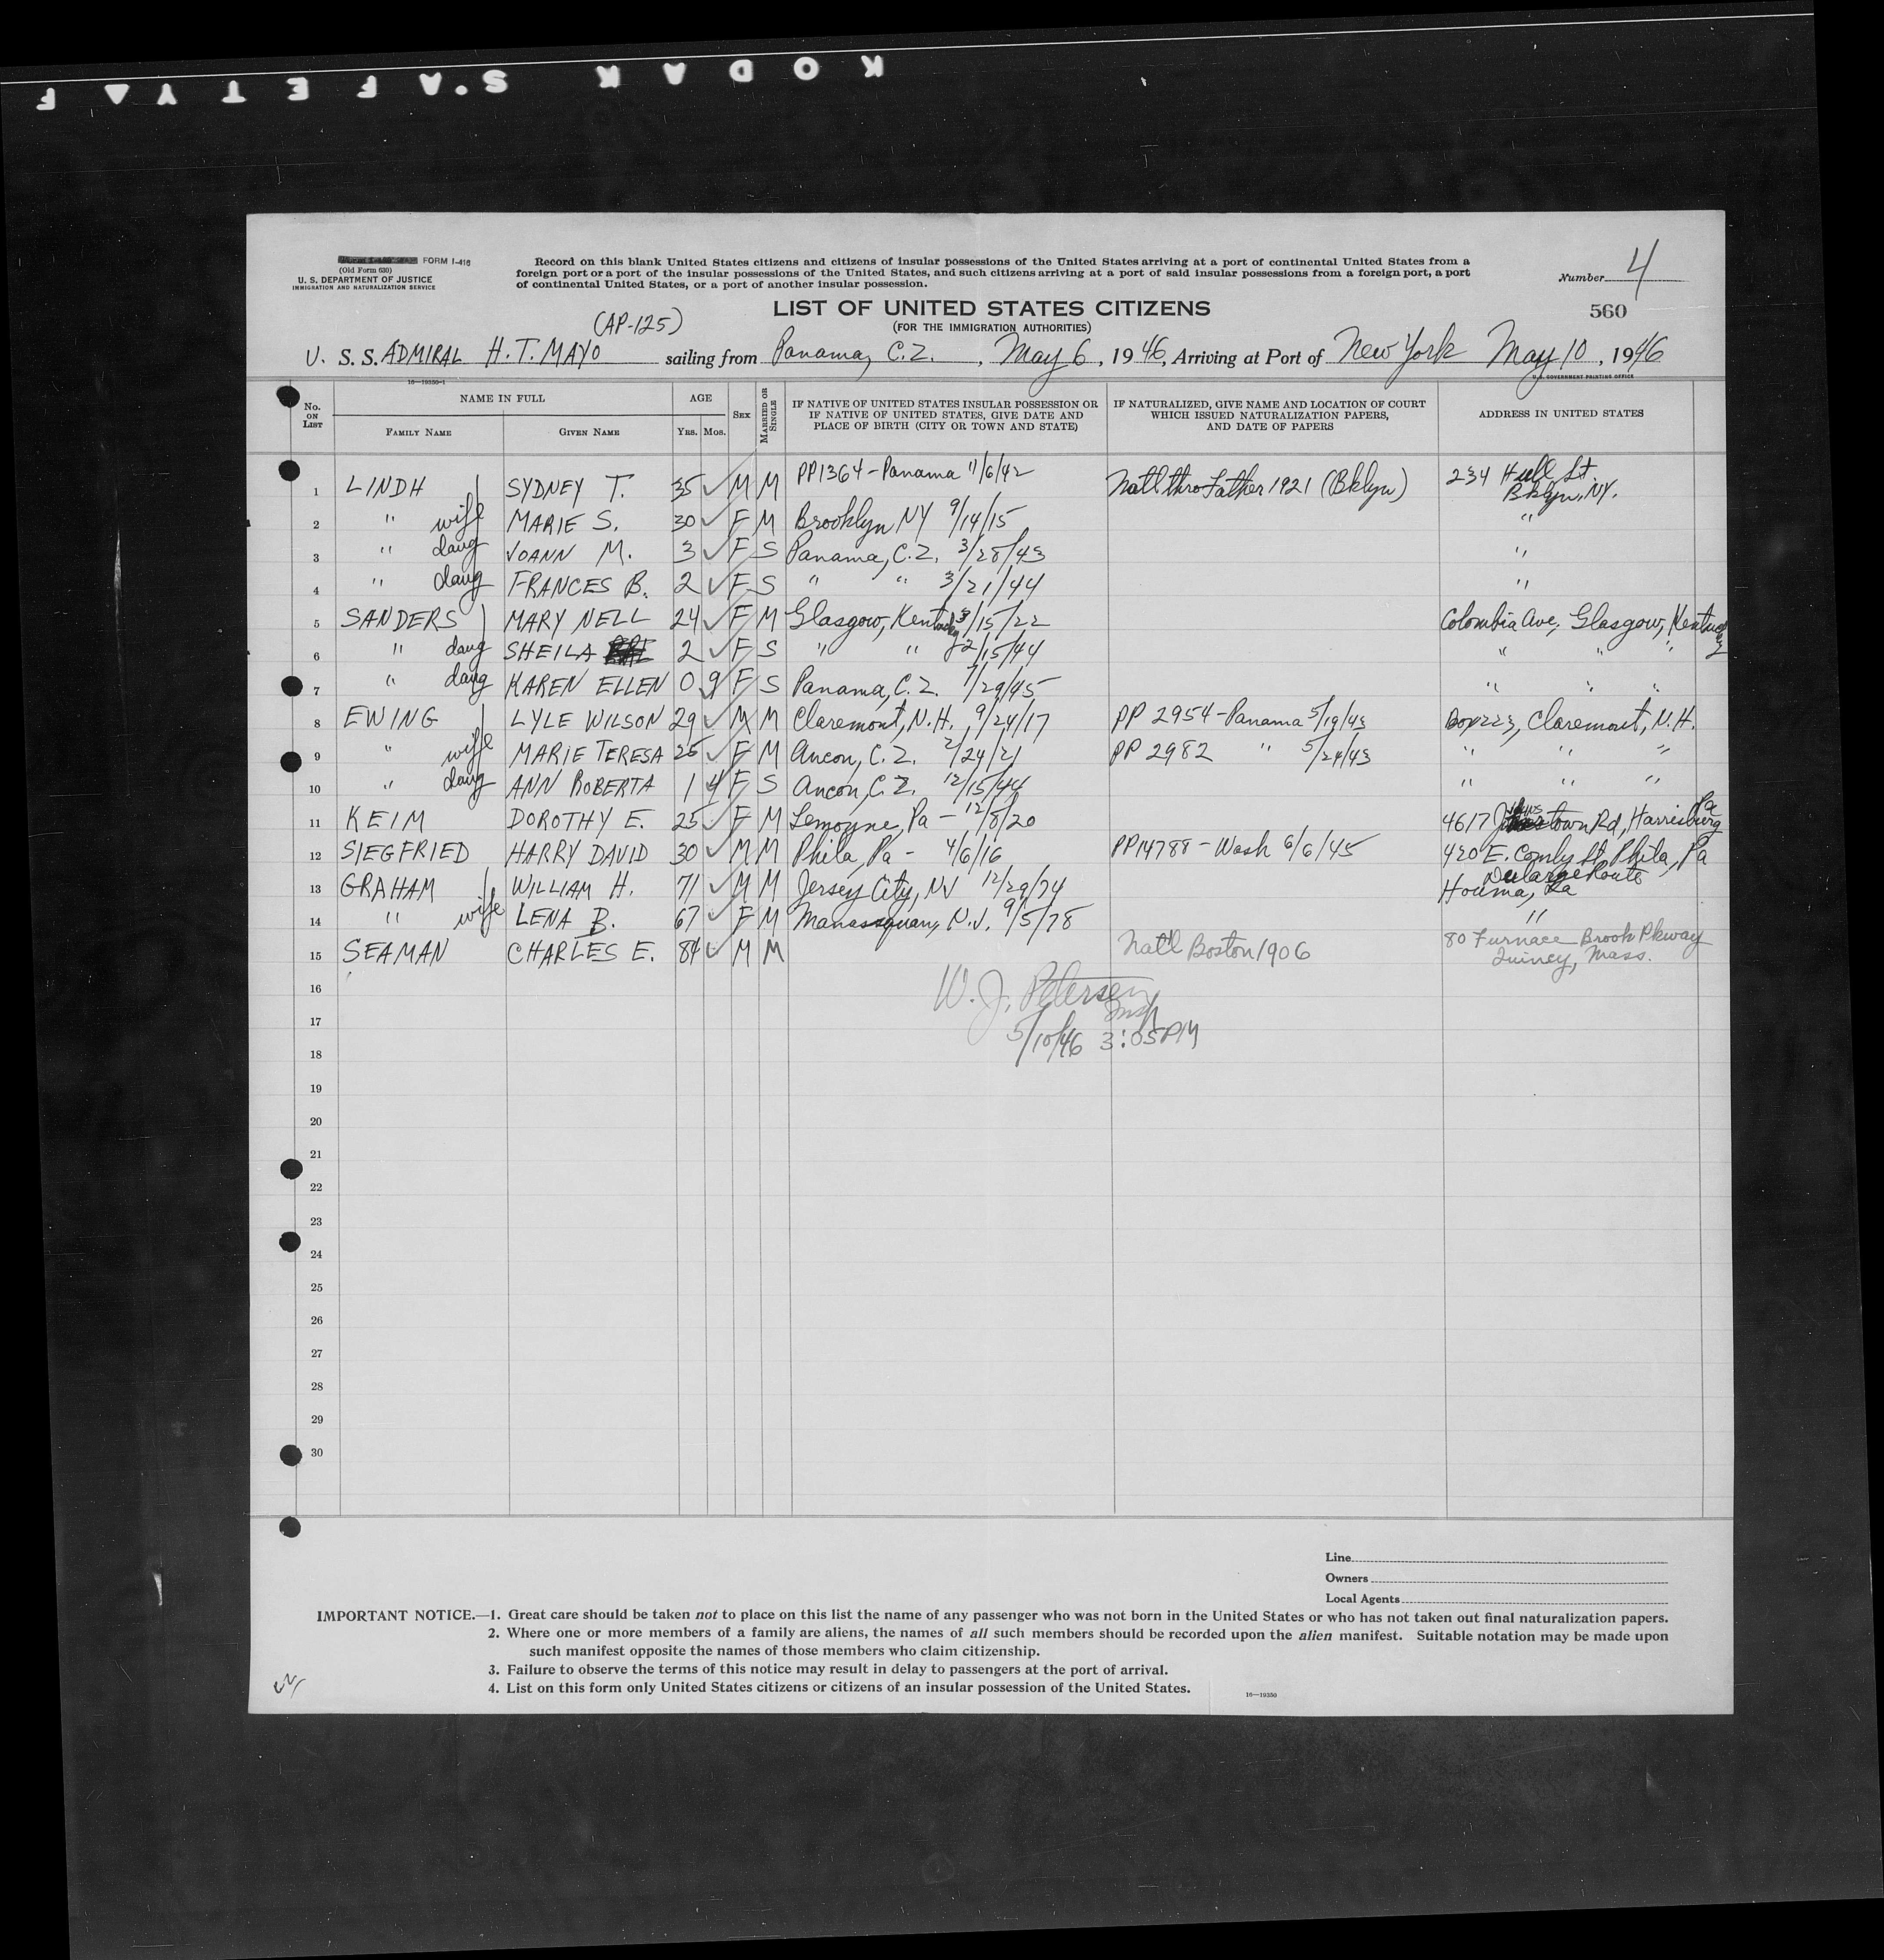 KODAK S'AFETY F
FORM I-416
(Old Form 630)
U. S. DEPARTMENT OF JUSTICE
IMMIGRATION AND NATURALIZATION SERVICE
Record on this blank United States citizens and citizens of insular possessions of the United States arriving at a port of continental United States from a
foreign port or a port of the insular possessions of the United States, and such citizens arriving at a port of said insular possessions from a foreign port, a port
of continental United States, or a port of another insular possession.
Number 4
560
LIST OF UNITED STATES CITIZENS
(FOR THE IMMIGRATION AUTHORITIES)
(AP-125)
U. S. S. ADMIRAL H. T. MAYO sailing from Panama, C.Z., May 6, 1946, Arriving at Port of New York May 10, 1946
16—19350-1
U. S. GOVERNMENT PRINTING OFFICE
No. ON LIST
NAME IN FULL
FAMILY NAME
GIVEN NAME
AGE
YRS.
MOS.
SEX
MARRIED OR SINGLE
IF NATIVE OF UNITED STATES INSULAR POSSESSION OR
IF NATIVE OF UNITED STATES, GIVE DATE AND
PLACE OF BIRTH (CITY OR TOWN AND STATE)
IF NATURALIZED, GIVE NAME AND LOCATION OF COURT
WHICH ISSUED NATURALIZATION PAPERS,
AND DATE OF PAPERS
ADDRESS IN UNITED STATES
1 LINDH SYDNEY T. 35 M M PP1364-Panama 11/6/42 Natl thro Father 1921 (Bklyn) 234 Hull St. Bklyn, NY.
2 " wife MARIE S. 30 F M Brooklyn NY 9/14/15 "
3 " daug JOANN M. 3 F S Panama, C.Z. 3/28/43 "
4 " daug FRANCES B. 2 F S " " 3/21/44 "
5 SANDERS MARY NELL 24 F M Glasgow, Kentucky 3/15/22 Colombia Ave, Glasgow, Kentucky
6 " daug SHEILA 2 F S " " 2/15/44 " " "
7 " daug KAREN ELLEN 0 9 F S Panama, C.Z. 7/29/45 " " "
8 EWING LYLE WILSON 29 M M Claremont, N.H. 9/24/17 PP 2954-Panama 5/19/43 Box 223, Claremont, N.H.
9 " wife MARIE TERESA 25 F M Ancon, C.Z. 2/24/21 PP 2982 " 5/24/43 " " "
10 " daug ANN ROBERTA 1 4 F S Ancon, C.Z. 12/15/44 " " "
11 KEIM DOROTHY E. 25 F M Lemoyne, Pa - 12/8/20 4617 Rd, Harrisburg Pa
12 SIEGFRIED HARRY DAVID 30 M M Phila, Pa - 4/6/16 PP14788-Wash 6/6/45 420 E. Comly St Phila, Pa
13 GRAHAM WILLIAM H. 71 M M Jersey City, NJ 12/29/74 Route Houma, La
14 " wife LENA B. 67 F M Manassquan, N.J. 9/5/78 "
15 SEAMAN CHARLES E. 84 M M Nat'l Boston 1906 80 Furnace Brook Pkway Quincy, Mass.
16
W. J. Petersen
Insp
17
5/10/46 3:05PM
18
19
20
21
22
23
24
25
26
27
28
29
30
Line
Owners
Local Agents
IMPORTANT NOTICE.—1. Great care should be taken not to place on this list the name of any passenger who was not born in the United States or who has not taken out final naturalization papers.
2. Where one or more members of a family are aliens, the names of all such members should be recorded upon the alien manifest. Suitable notation may be made upon
such manifest opposite the names of those members who claim citizenship.
3. Failure to observe the terms of this notice may result in delay to passengers at the port of arrival.
4. List on this form only United States citizens or citizens of an insular possession of the United States.
16—19350